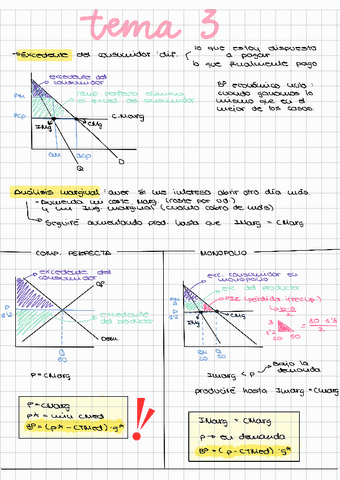 tema 3
→ Excedente del consumidor: dif.
lo que estoy dispuesta a pagar
lo que finalmente pago
excedente del consumidor
Comp perfecta elimina el exced. del consumidor
Bº económico nulo:
cuando ganamos lo
mismo que en el
mejor de los casos.
PM
Pcp
C.Marg
IMg
CMg
QM
Qcp
D
Análisis marginal: aver si me interesa abrir otro día más
- Aumenta mi coste Marg (coste por ud)
y mi Ing. marginal (cuanto cobro de más)
→ Seguiré aumentando prod. hasta que IMarg = CMarg
COMP. PERFECTA
excedente del consumidor
Of
P
excedente del productor
Dem
Q
50
P = CMarg
P = CMarg
P* = min CMed
Bº = (P* - CTMed) · q*
MONOPOLIO
exc. consumidor en monopolio
exc. del productor
PIE (pérdida irrecup.)
b·a
2
IMg
CMg
3
20 50
QM
20
Q
50
Imarg < P → bajo la demanda
producire hasta Imarg = Cmarg
IMarg = CMarg
P → en demanda
Bº = (P - CTMed) · q*